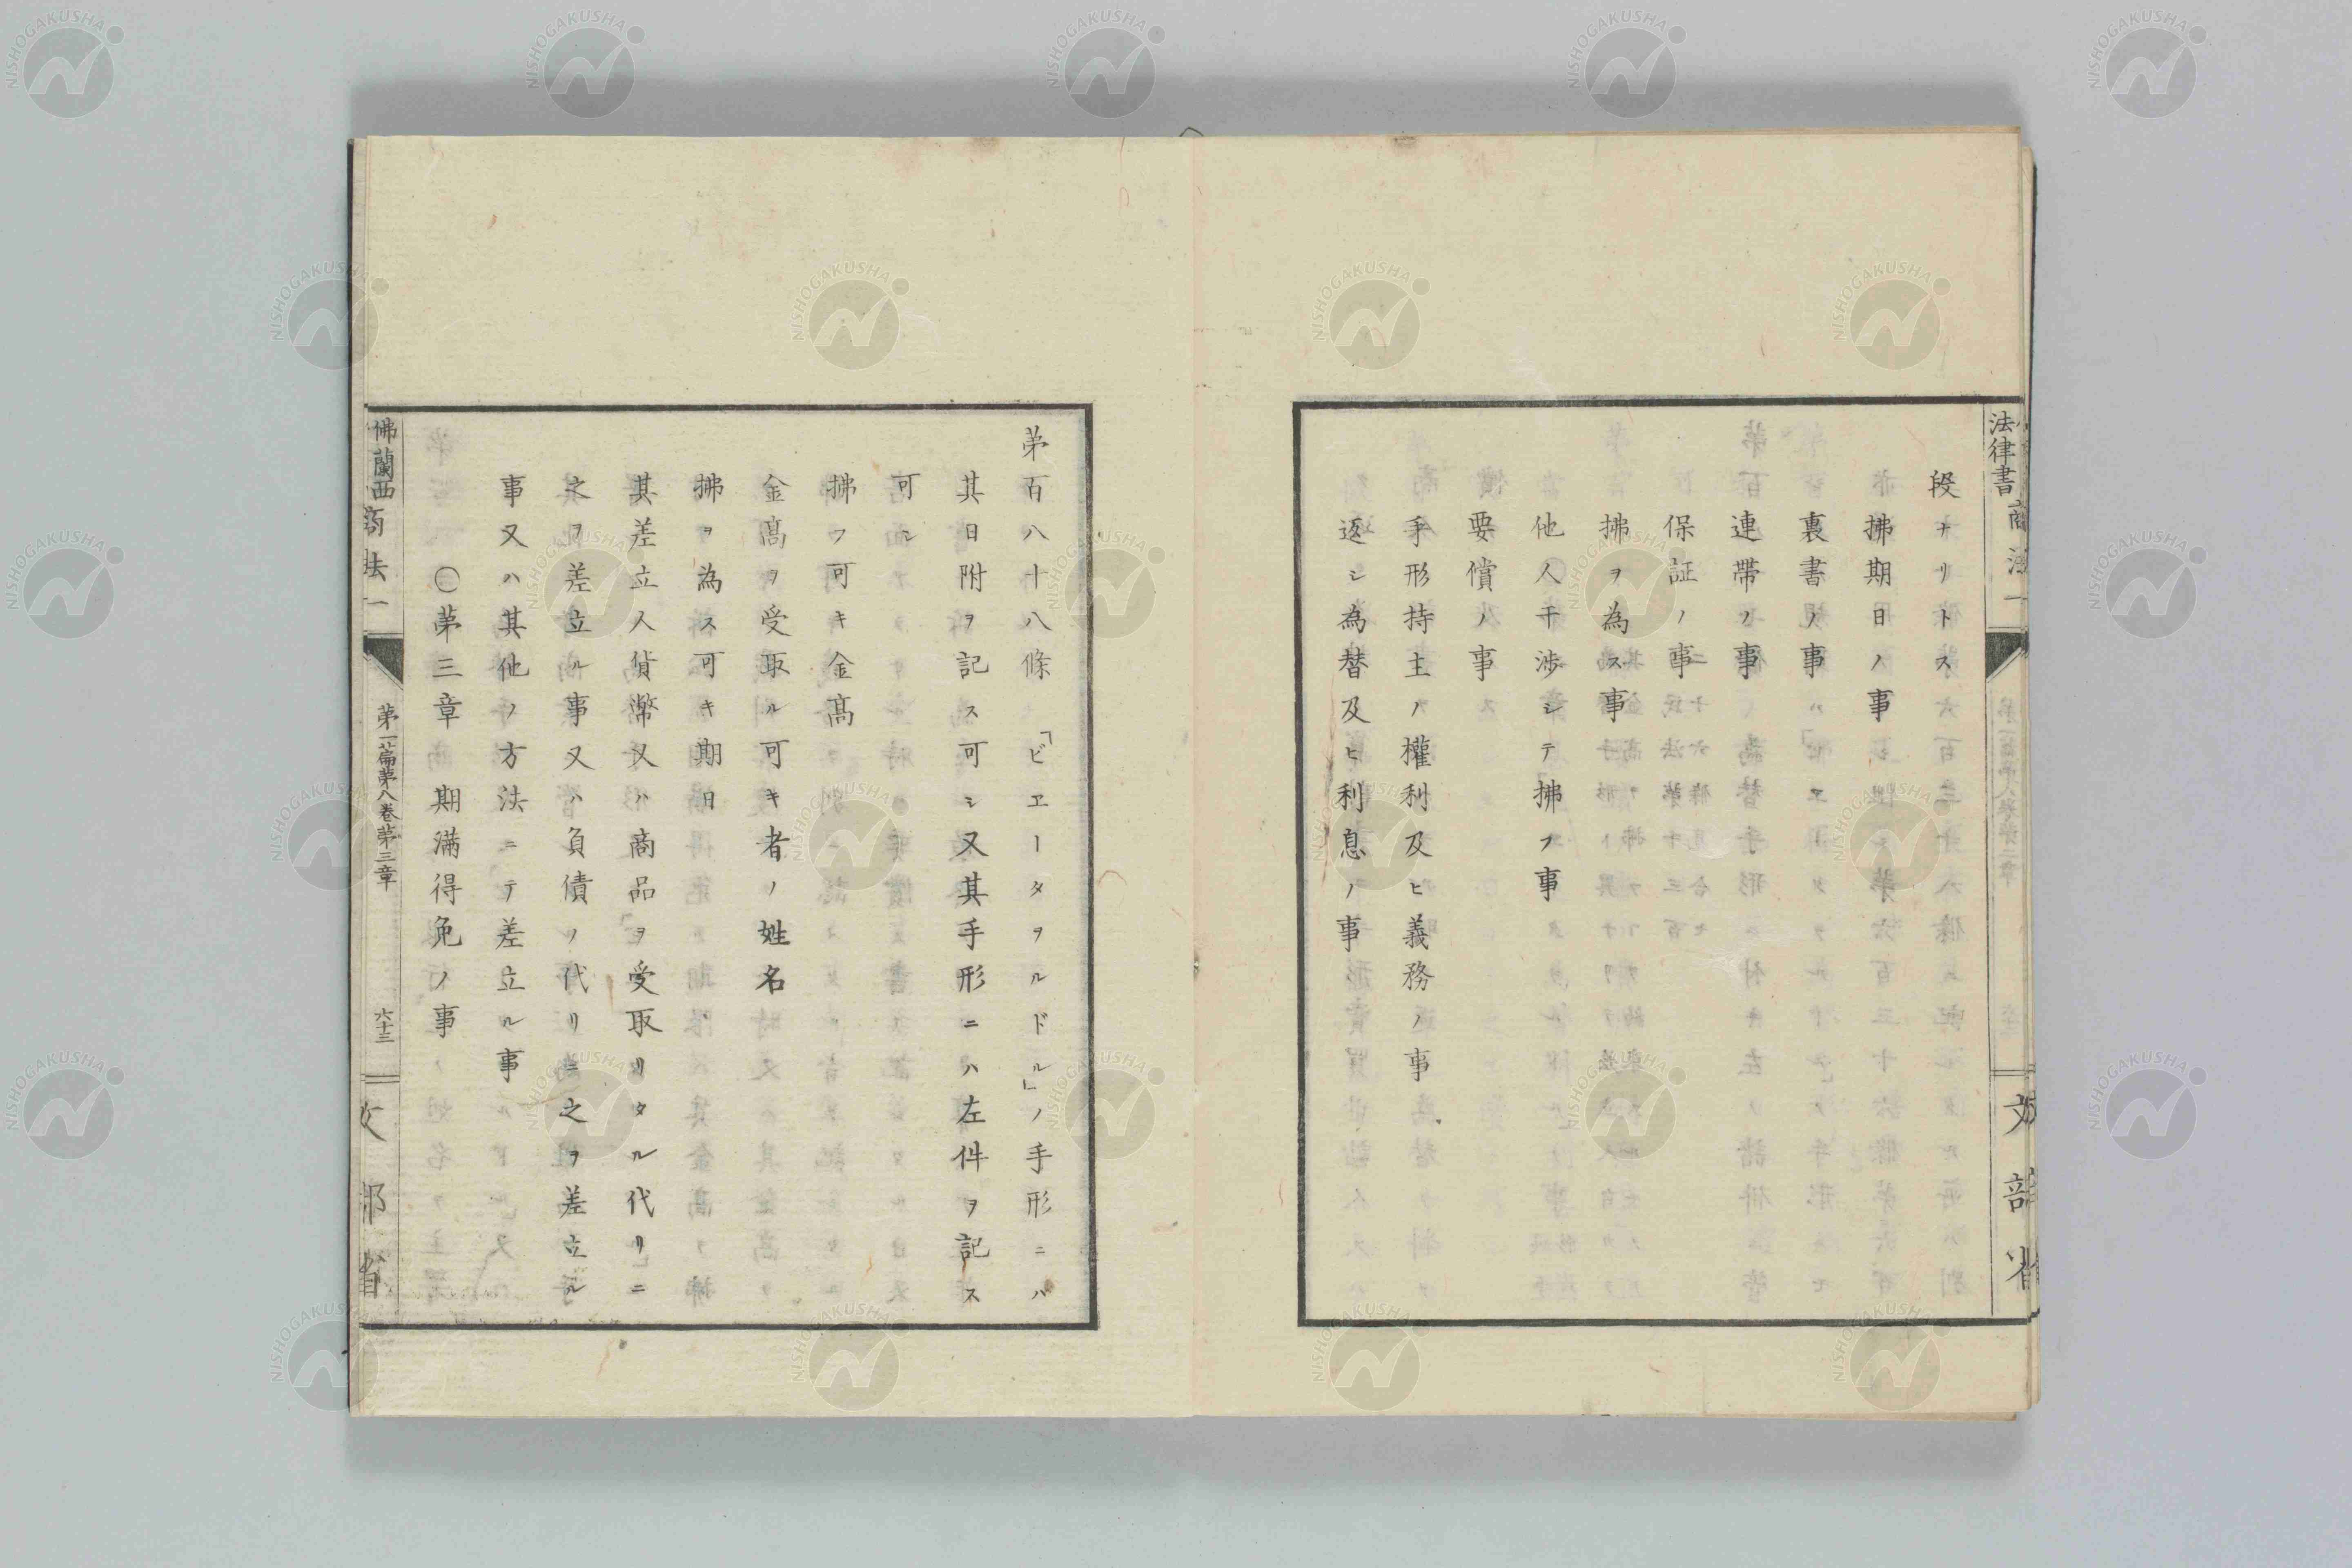 法律書 商法 一
文部省
段ナリトス
拂期日ノ事
裏書ノ事
連帶ノ事
保証ノ事
拂ヲ為ス事
他人干渉シテ拂フ事
要償ノ事
手形持主ノ權利及ヒ義務ノ事
返シ為替及ヒ利息ノ事
第百八十八條 「ビエータヲルドル」ノ手形ニハ
其日附ヲ記ス可シ又其手形ニハ左件ヲ記ス
可シ
拂フ可キ金髙
金髙ヲ受取ル可キ者ノ姓名
拂ヲ為ス可キ期日
其差立人貨幣又ハ商品ヲ受取リタル代リニ
之ヲ差立ル事又ハ負債ノ代リニ之ヲ差立ル
事又ハ其他ノ方法ニテ差立ル事
〇第三章 期滿得免ノ事
佛蘭西商法 一
第一篇第八巻第三章
六十三
文部省
NISHOGAKUSHA